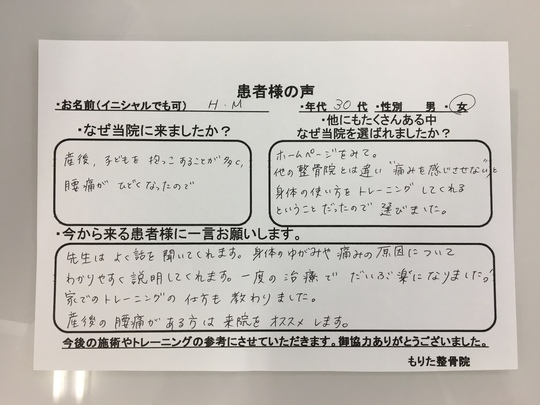 患者様の声
・お名前(イニシャルでも可) H.M ・年代 30 代 ・性別 男 ・ 女
・なぜ当院に来ましたか?
産後、子どもを抱っこすることが多く、
腰痛が ひどくなったので
・他にもたくさんある中
なぜ当院を選ばれましたか?
ホームページをみて。
他の整骨院とは違い"痛みを感じさせない"と
身体の使い方をトレーニングしてくれる
ということだったので 選びました。
・今から来る患者様に一言お願いします。
先生は よく話を聞いてくれます。身体のゆがみや痛みの原因について
わかりやすく説明してくれます。一度の治療で だいぶ楽になりました。
家でのトレーニングの仕方も 教わりました。
産後の腰痛がある方は来院をオススメします。
今後の施術やトレーニングの参考にさせていただきます。御協力ありがとうございました。
もりた整骨院